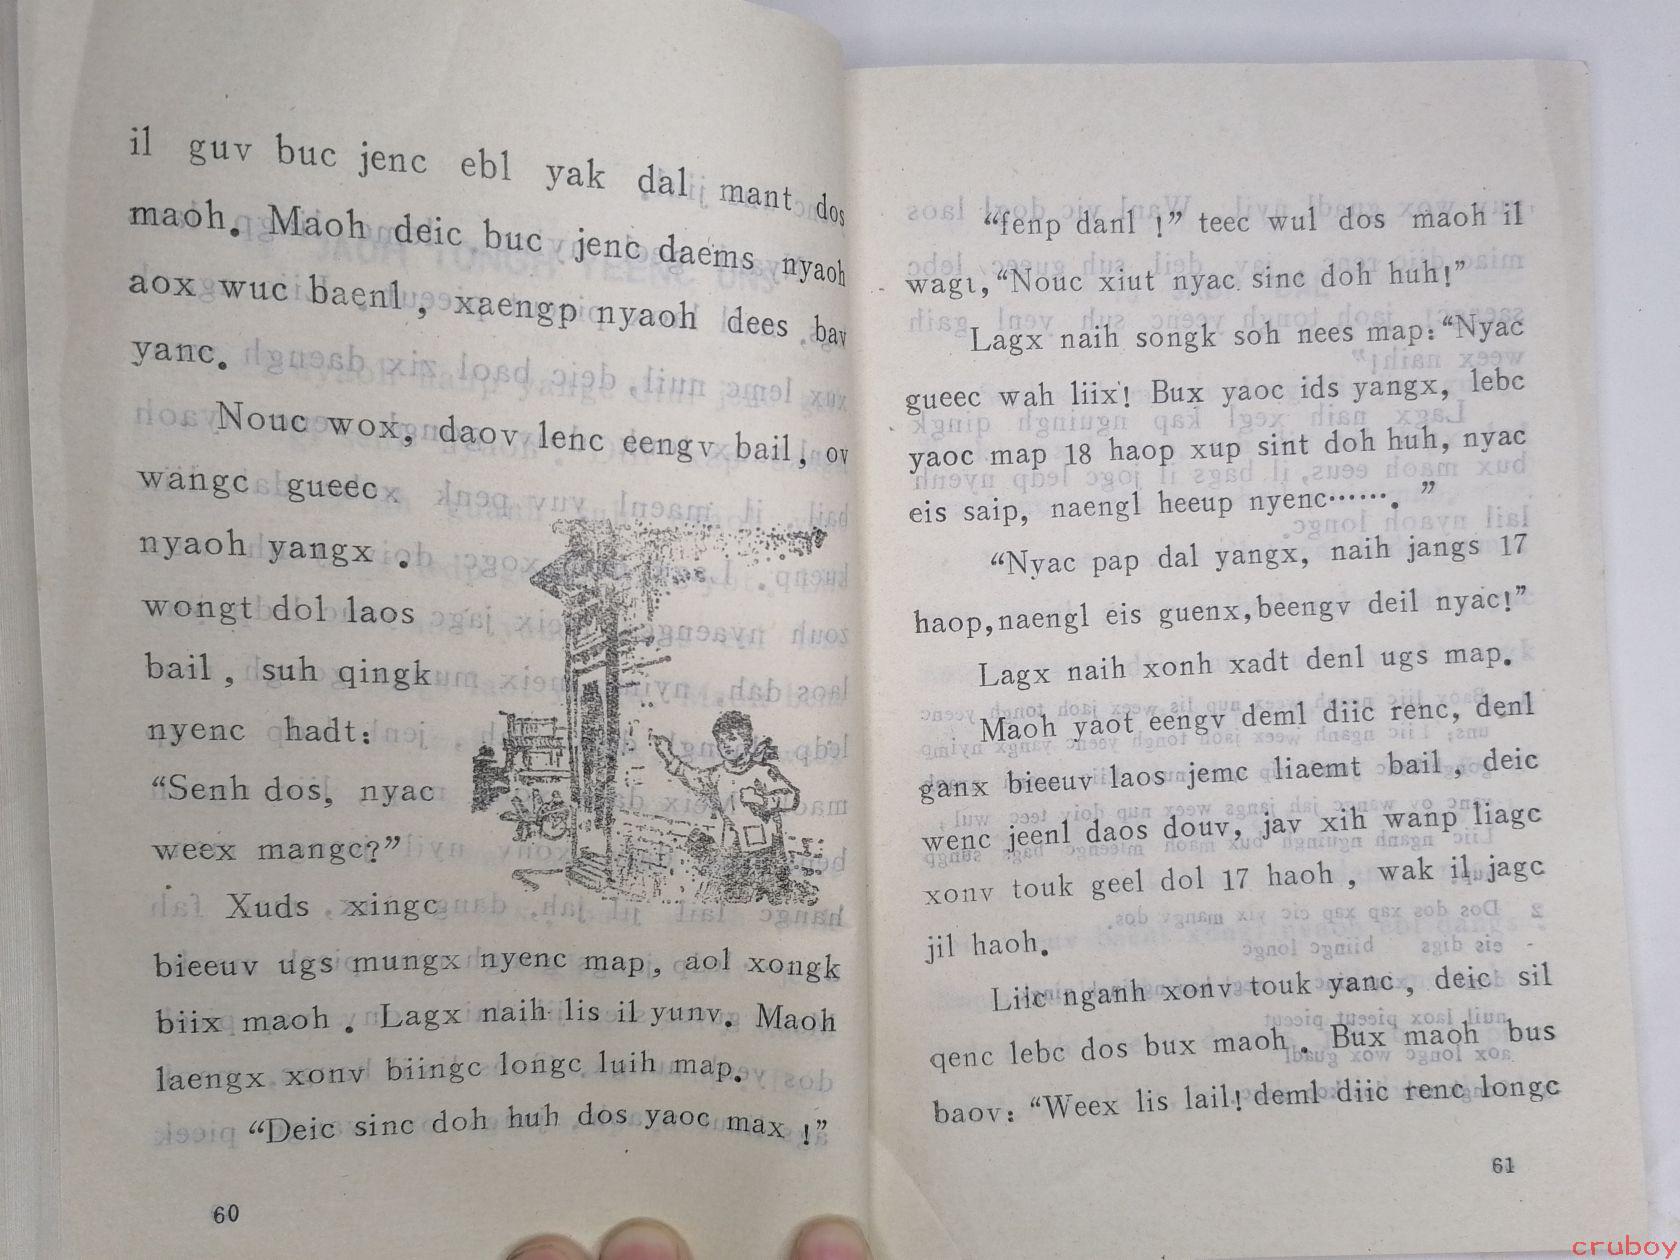 il guv buc jenc ebl yak dal mant dos
maoh. Maoh deic buc jenc daems nyaoh
aox wuc baenl, xaengp nyaoh dees bav
yanc.
Nouc wox, daov lenc eengv bail, ov
wangc gueec
nyaoh yangx.
wongt dol laos
bail, suh qingk
nyenc hadt:
“Senh dos, nyac
weex mangc?”
Xuds xingc
bieeuv ugs mungx nyenc map, aol xongk
biix maoh. Lagx naih lis il yunv. Maoh
laengx xonv biingc longc luih map.
“Deic sinc doh huh dos yaoc max!”
60
“fenp danl!” teec wul dos maoh il
wagt, “Nouc xiut nyac sinc doh huh!”
Lagx naih songk soh nees map: “Nyac
gueec wah liix! Bux yaoc ids yangx, lebc
yaoc map 18 haop xup sint doh huh, nyac
eis saip, naengl heeup nyenc……. ”
“Nyac pap dal yangx, naih jangs 17
haop, naengl eis guenx, beengv deil nyac!”
Lagx naih xonh xadt denl ugs map.
Maoh yaot eengv deml diic renc, denl
ganx bieeuv laos jemc liaemt bail, deic
wenc jeenl daos douv, jav xih wanp liagc
xonv touk geel dol 17 haoh, wak il jagc
jil haoh.
Liic nganh xonv touk yanc, deic sil
qenc lebc dos bux maoh. Bux maoh bus
baov: “Weex lis lail! deml diic renc longc
61
cruboy